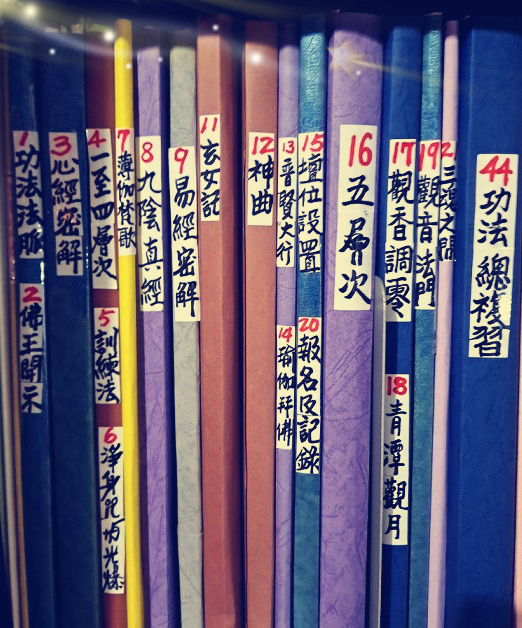 1 功法法脈
2 佛王開示
3 心經密解
4 一至四層次
5 訓練法
6 淨身咒
7 薄伽梵歌
8 九陰真經
9 易經密解
11 玄女訣
12 神曲
13 普賢大行
14 瑜伽拜佛
15 壇位設置
20 報名及記錄
16 五層次
17 觀香調零
18 青潭觀月
19 觀音法門
44 功法總複習